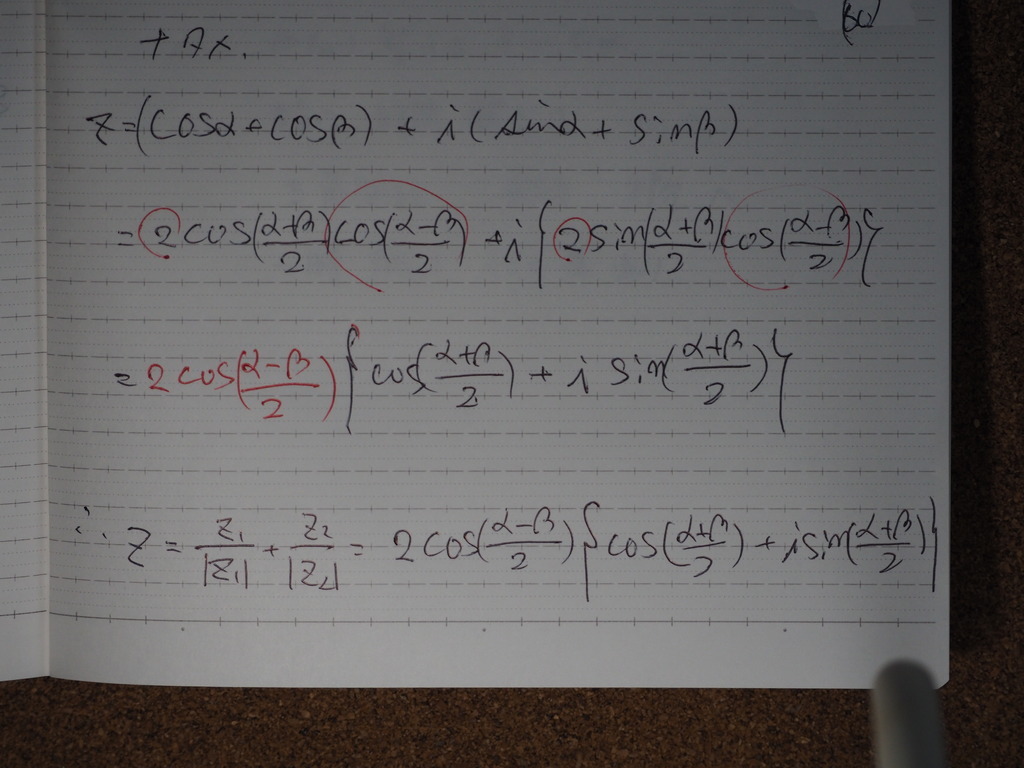 + Ax.
z=(cosα+cosβ) + i(sinα+sinβ)
=2cos(α+β/2)cos(α-β/2) + i{2sin(α+β/2)cos(α-β/2)}
=2cos(α-β/2){cos(α+β/2) + i sin(α+β/2)}
∴ Z = Z₁/|Z₁| + Z₂/|Z₂| = 2cos(α-β/2){cos(α+β/2) + i sin(α+β/2)}